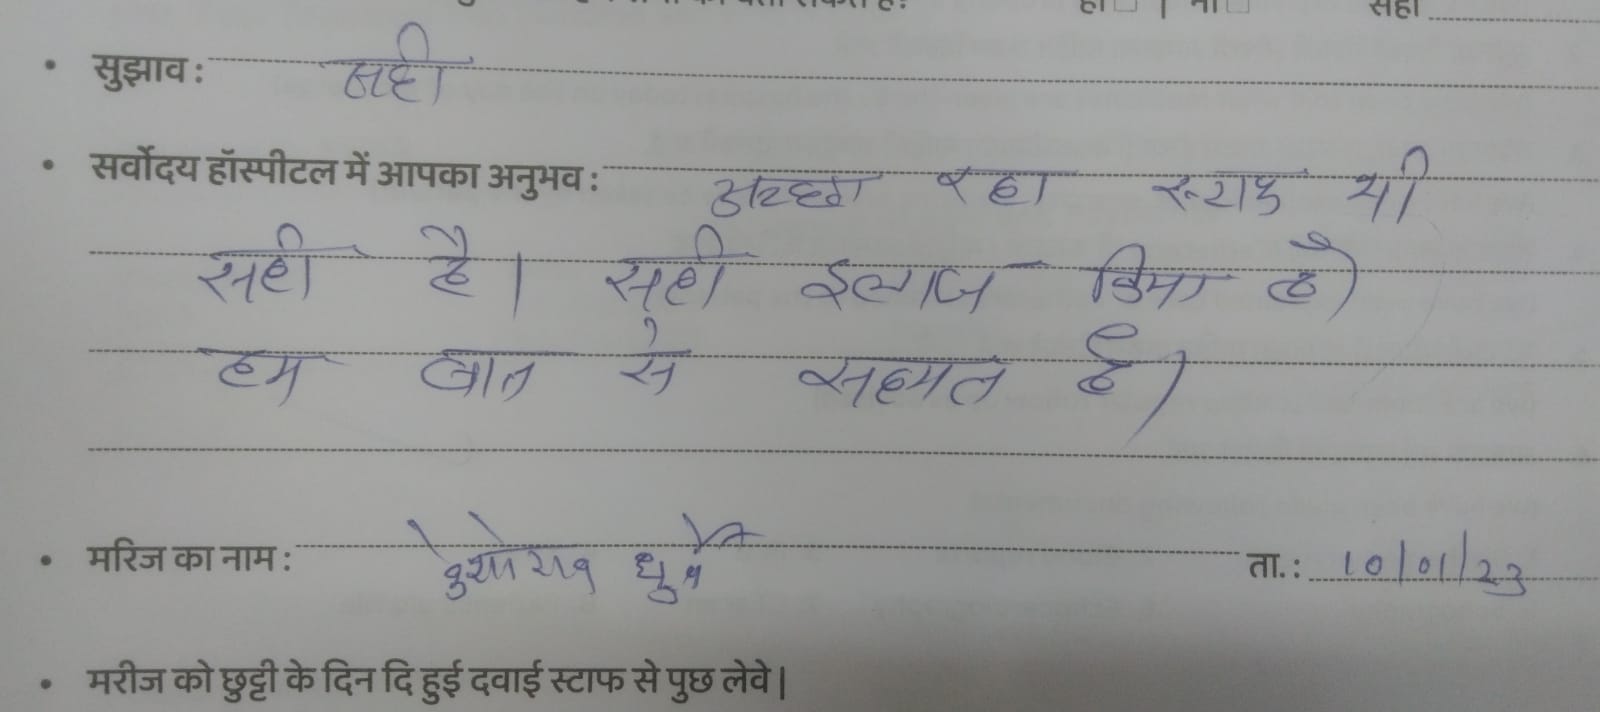 हाँ □ | ना □ सही
• सुझाव : सही
• सर्वोदय हॉस्पीटल में आपका अनुभव : अच्छा रहा स्टाफ भी
सही है। सही इलाज किया है
हम बात से सहमत है।
• मरिज का नाम : धुर्वे ता. : 10/01/23
• मरीज को छुट्टी के दिन दि हुई दवाई स्टाफ से पुछ लेवे।